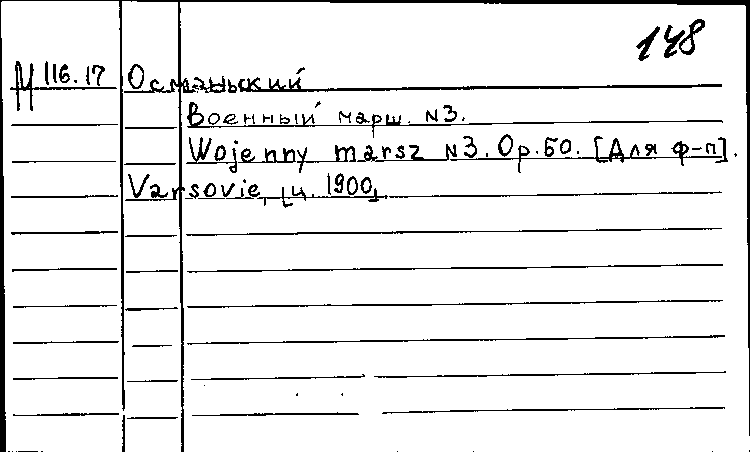 148
М 116.17 Османьский
Военный марш. N3.
Wojenny marsz N3. Op.50. [Для ф-п].
Varsovie, [ц. 1900]